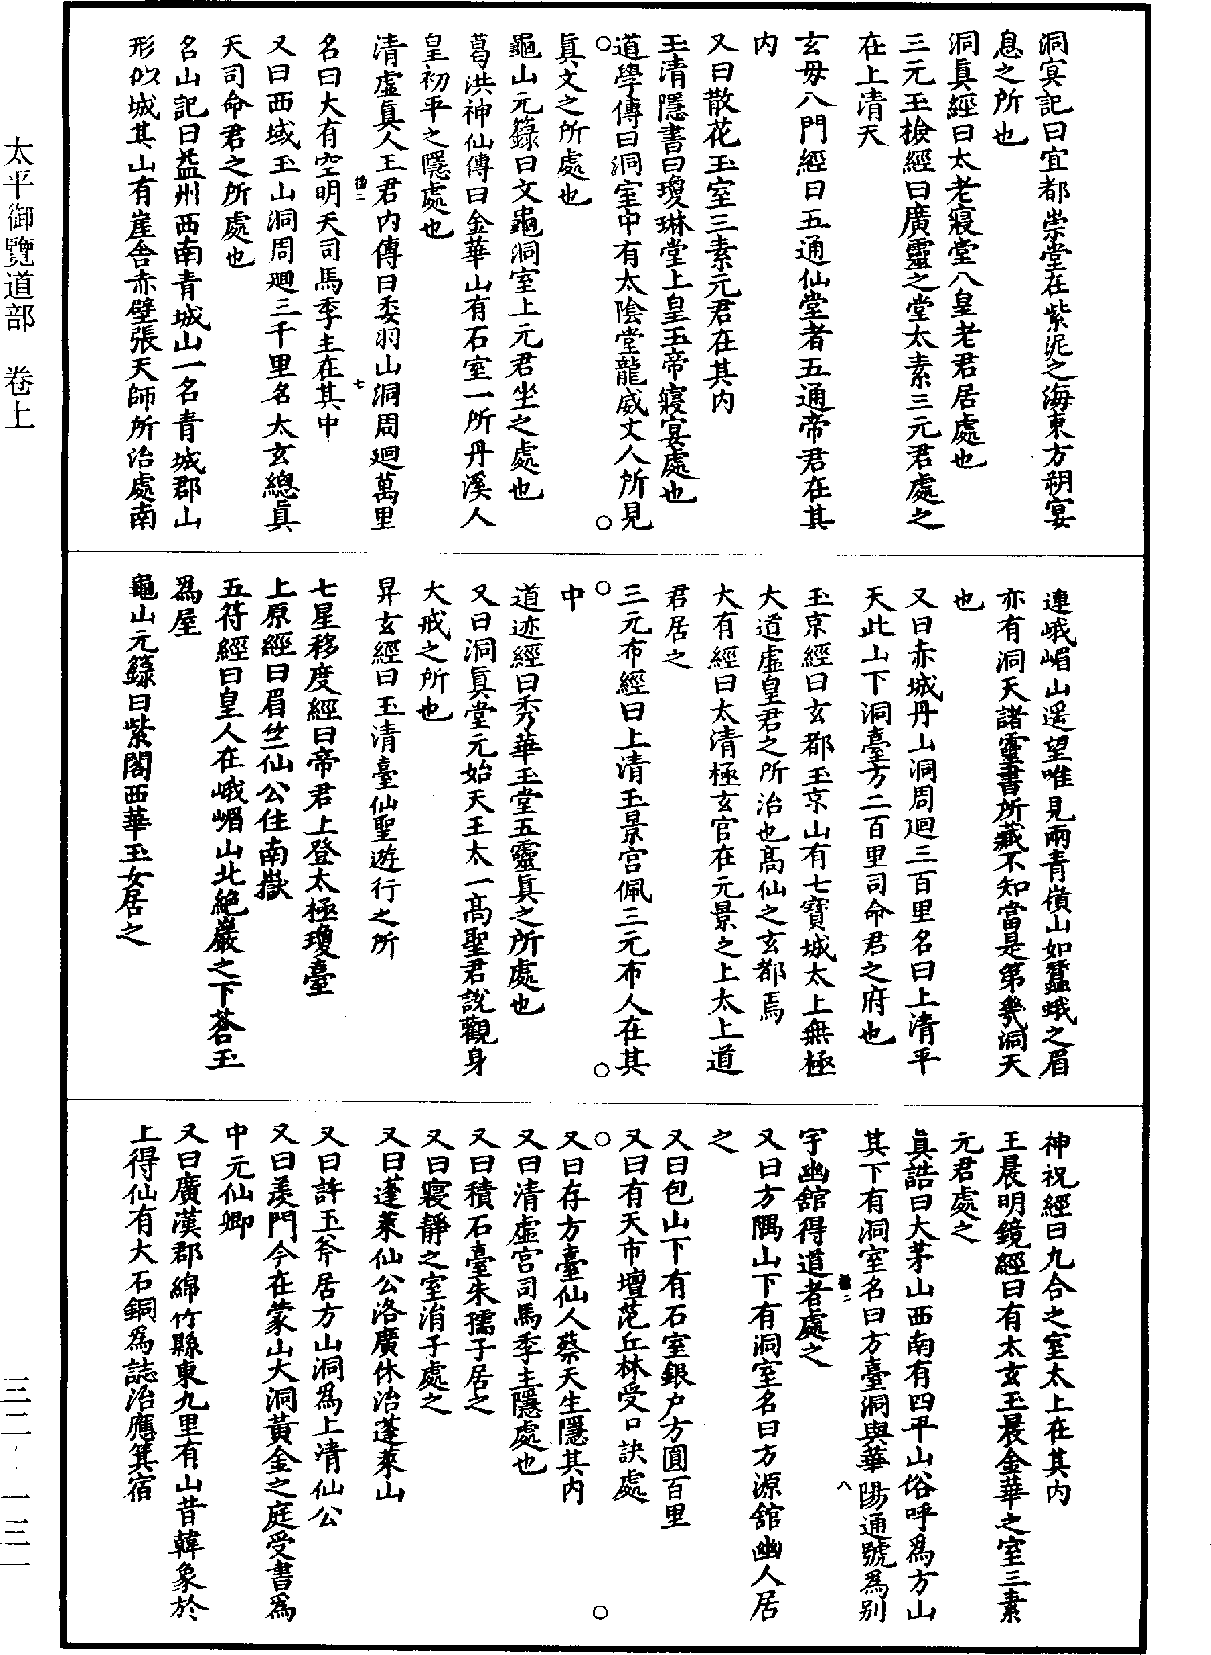 洞冥記曰宜都崇堂在紫泥之海東方朔宴
息之所也
洞眞經曰太老寢堂八皇老君居處也
三元玉檢經曰廣靈之堂太素三元君處之
在上清天
玄母八門經曰五通仙堂者五通帝君在其
内
又曰散花玉室三素元君在其内
玉清隱書曰瓊琳堂上皇玉帝寢宴處也
道學傳曰洞室中有太陰堂龍威丈人所見
眞文之所處也
龜山元籙曰文龜洞室上元君坐之處也
葛洪神仙傳曰金華山有石室一所丹溪人
皇初平之隱處也
清虛眞人王君内傳曰委羽山洞周廻萬里
七
名曰大有空明天司馬季主在其中
又曰西域玉山洞周廻三千里名太玄總眞
天司命君之所處也
名山記曰益州西南青城山一名青城郡山
形似城其山有崖舍赤壁張天師所治處南
連峨嵋山遥望唯見兩青嶺山如蠶蛾之眉
亦有洞天諸靈書所藏不知當是第幾洞天
也
又曰赤城丹山洞周廻三百里名曰上清平
天此山下洞臺方二百里司命君之府也
玉京經曰玄都玉京山有七寶城太上無極
大道虛皇君之所治也高仙之玄都焉
大有經曰太清極玄宫在元景之上太上道
君居之
三元布經曰上清玉景宫佩三元布人在其
中
道迹經曰秀華玉堂五靈眞之所處也
又曰洞眞堂元始天王太一高聖君説觀身
大戒之所也
昇玄經曰玉清臺仙聖遊行之所
七星移度經曰帝君上登太極瓊臺
上原經曰眉竺仙公住南嶽
五符經曰皇人在峨嵋山北絶巖之下蒼玉
爲屋
龜山元籙曰紫閣西華玉女居之
神祝經曰九合之室太上在其内
王晨明鏡經曰有太玄玉晨金華之室三素
元君處之
眞誥曰大茅山西南有四平山俗呼爲方山
其下有洞室名曰方臺洞與華陽通號爲别
八
宇幽舘得道者處之
又曰方隅山下有洞室名曰方源舘幽人居
之
又曰包山下有石室銀户方圓百里
又曰有天市壇范丘林受口訣處
又曰存方臺仙人蔡天生隱其内
又曰清虛宫司馬季主隱處也
又曰積石臺朱孺子居之
又曰寢靜之室涓子處之
又曰蓬萊仙公洛廣休治蓬萊山
又曰許玉斧居方山洞爲上清仙公
又曰羨門今在蒙山大洞黄金之庭受書爲
中元仙卿
又曰廣漢郡綿竹縣東九里有山昔韓象於
上得仙有大石銅爲誌治應箕宿
太平御覽道部　卷上
三二·一三一